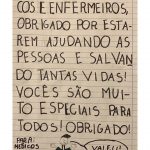 COS E ENFERMEIROS,
OBRIGADO POR ESTA-
REM AJUDANDO AS
PESSOAS E SALVAN
DO TANTAS VIDAS!
VOCÊS SÃO MUI-
TO ESPECIAIS PARA
TODOS! OBRIGADO!
PARA: VALEU!
MÉDICOS